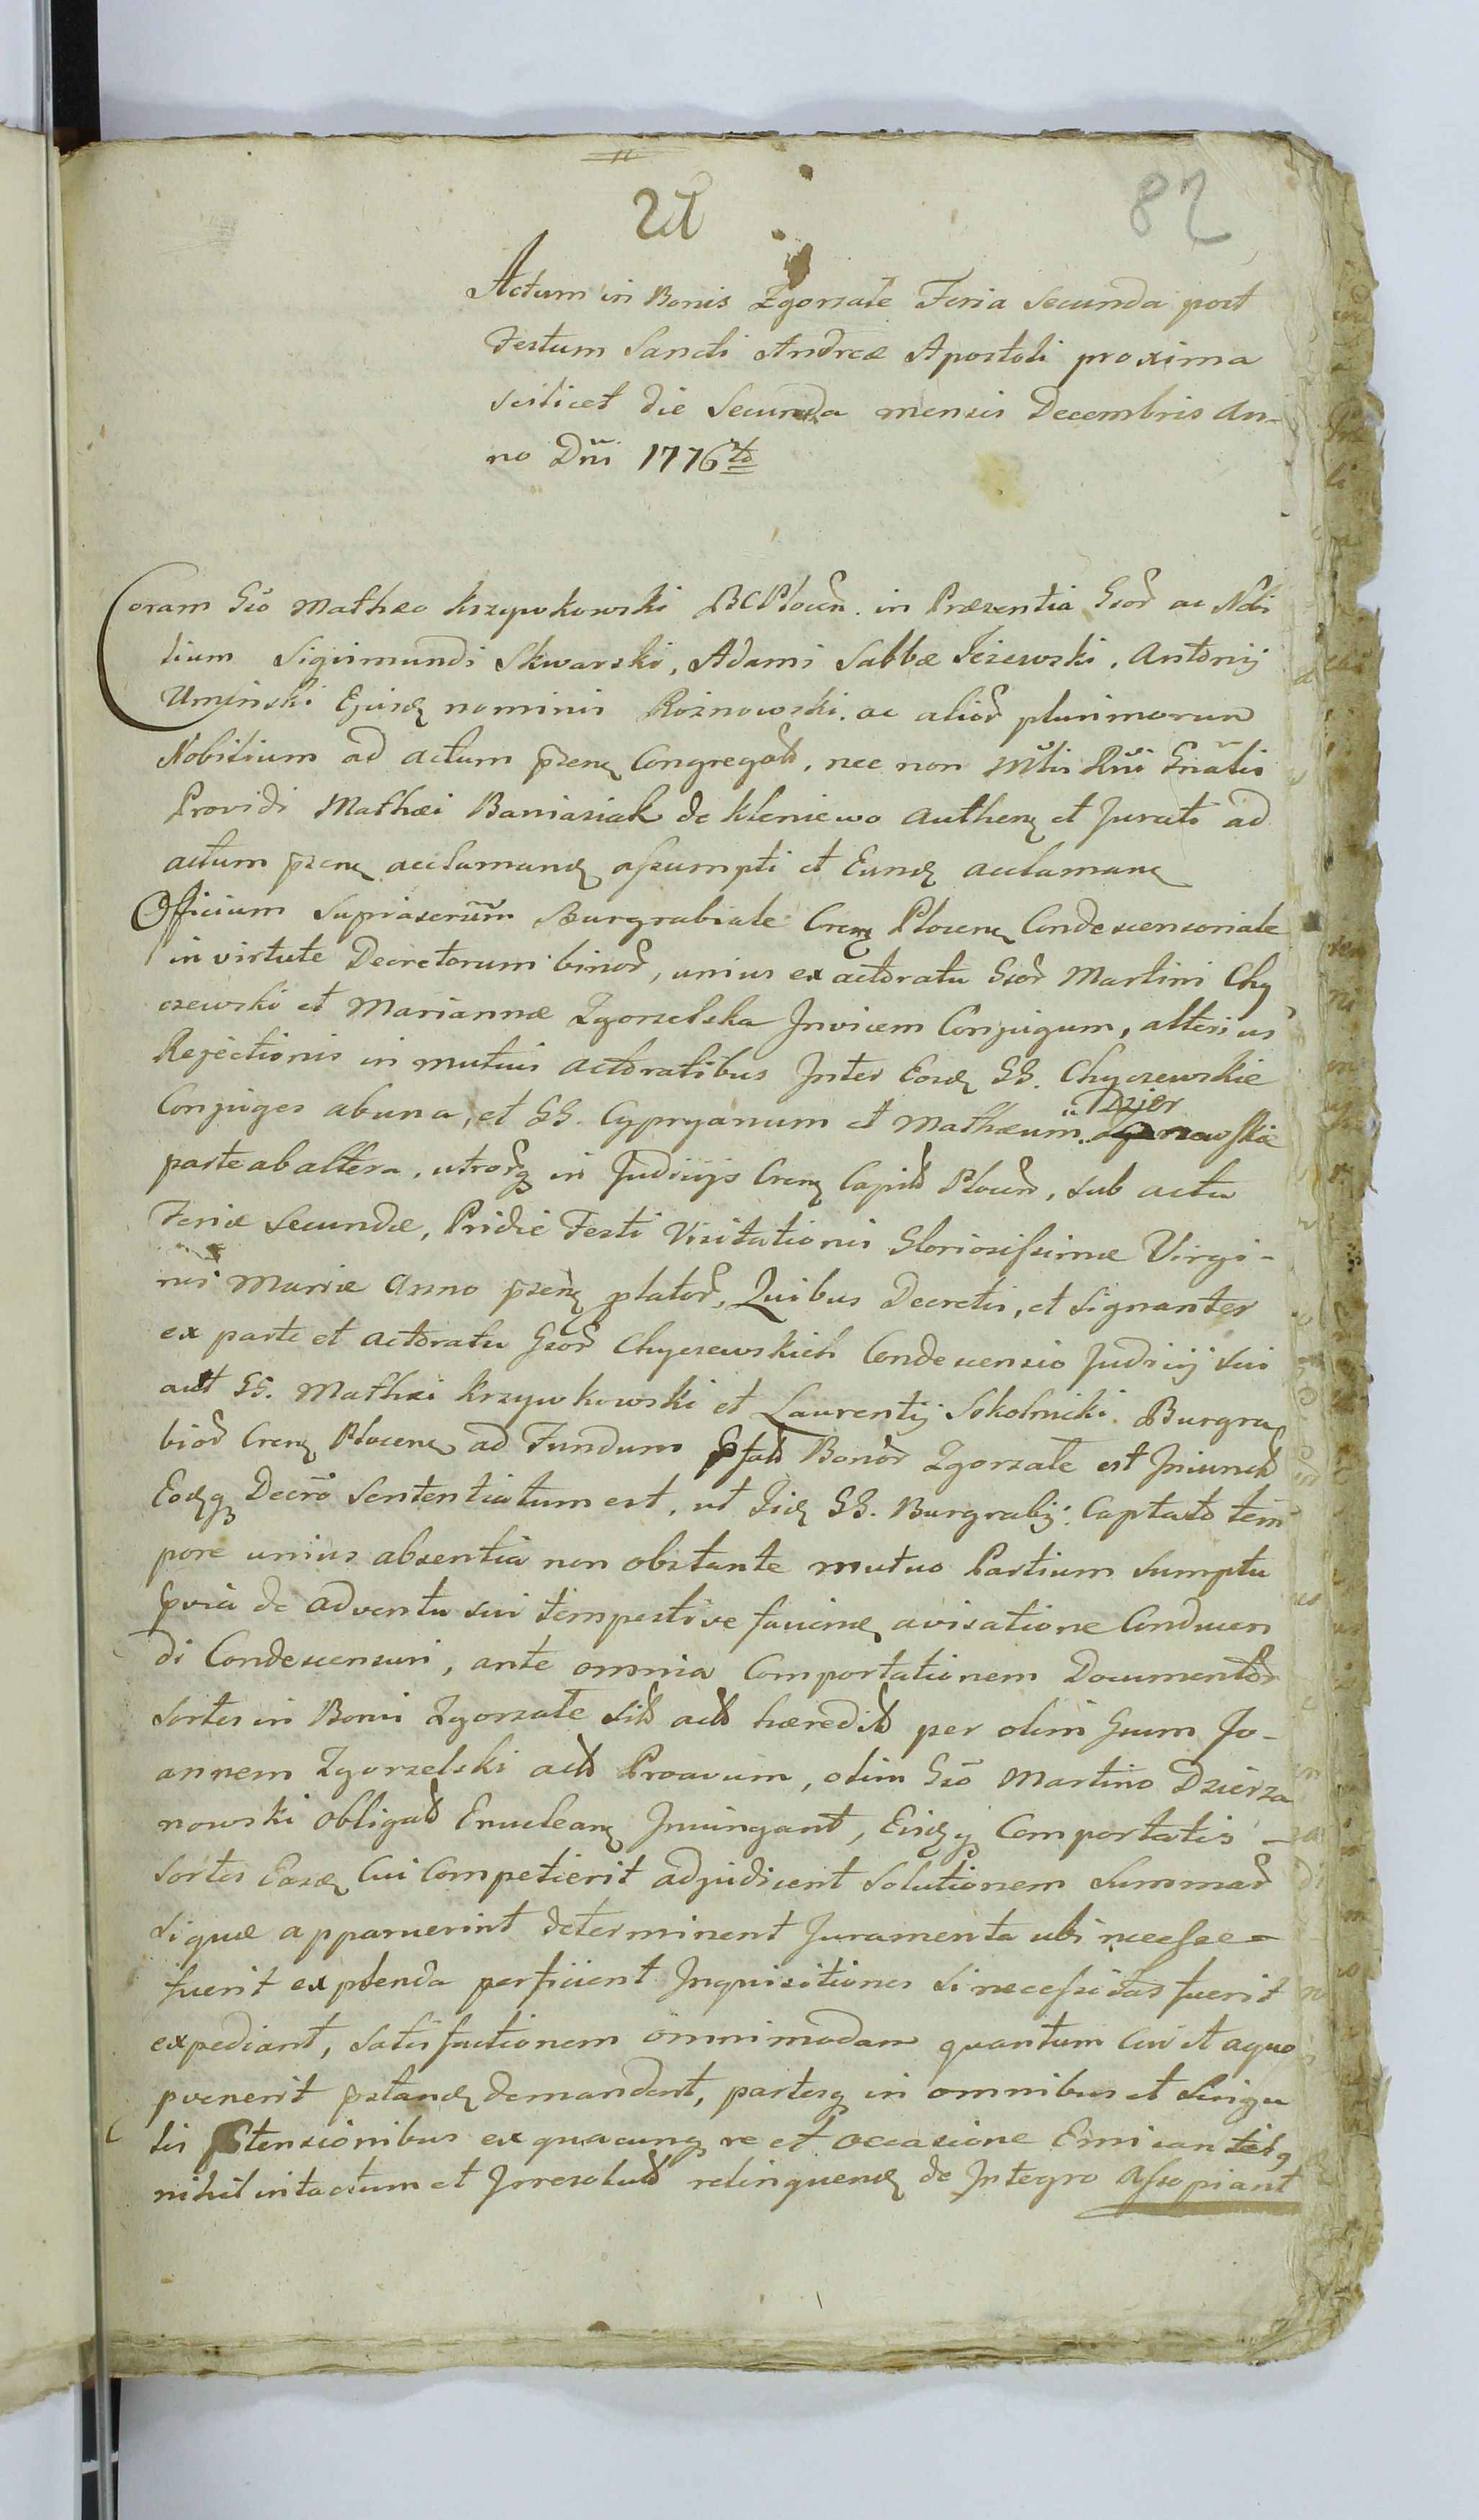 82
Actum in Bonis Zgorzałe Feria Secunda post
Festum Sancti Andreæ Apostoli proxima
scilicet die Secunda mensis Decembris An-
no Dñi 1776to
Coram Gso Mathæo Krzywkowski BCPlocen. in Præsentia Gsor ac Nobi
lium Sigismundi Skwarski, Adami Sabbæ Jeżewski, Antonij
Uminski Ejusd nominis Rożnowski. ac alior plurimorum
Nobilium ad actum pzen Congregat, nec non Mlis Rni Gnãlis
Providi Mathæi Baniasiak de Kleniewo Authen et Jurati ad
actum pzen acclamand assumpti et Eund acclaman
Officium Suprascrm Burgrabiale Cren Plocen Condescensoriale
in virtute Decretorum binor, unius ex actoratu Gsor Martini Chy
czewski et Mariannæ Zgorzelska Invicem Conjugum, alterius
Rejectionis in mutuis actoratibus Inter Eosd GG. Chyczewskie
Conjuges ab una, et GG. Cypryanum et Mathæum Dzier
nowskie
parte ab altera, utrorq in Judicijs Cren Capit Plocen, sub actu
Feriæ Secundæ, Pridie Festi Visitationis Gloriosissimæ Virgi-
nis Mariæ Anno pzen plator, Quibus Decretis, et signanter
ex parte et actoratu Gsor Chyczewskich Condescensio Judicij sui
aut GG. Mathæi Krzywkowski et Laurentij Sokolnicki Burgra
bior Cren Plocen ad Fundum pfat Bonor Zgorzałe est Iniunct
Eodq Decro Sententiatum est, ut Iid GG. Burgrabij Captato tem
pore unius absentia non obstante mutuo Partium sumptu
pvia de adventu sui tempestive faciend avisatione Conducen
di Condescensuri, ante omnia Comportationem Documentor
Sortes in Bonis Zgorzałe sit act hæredit per olim Gsum Jo-
annem Zgorzelski act Proavum, olim Gso Martino Dzierża
nowski obligat Enuclean Iniungant, Eisdq Comportatis
Sortes Easd Cui Competierit adjudicent Solutionem Summar
si quæ apparuerint determinent Juramenta ubi necesse
fuerit explenda perficient Inquisitiones si necessitas fuerit
expediant, Satisfactionem omnimodam quantum Cui et a quo
pvenerit pstand demandent, partesq in omnibus et Singu
lis Ptensionibus ex quacunq re et occasione Emicantibq
nihil intactum et Irresolut relinquend de Integro Assopiant